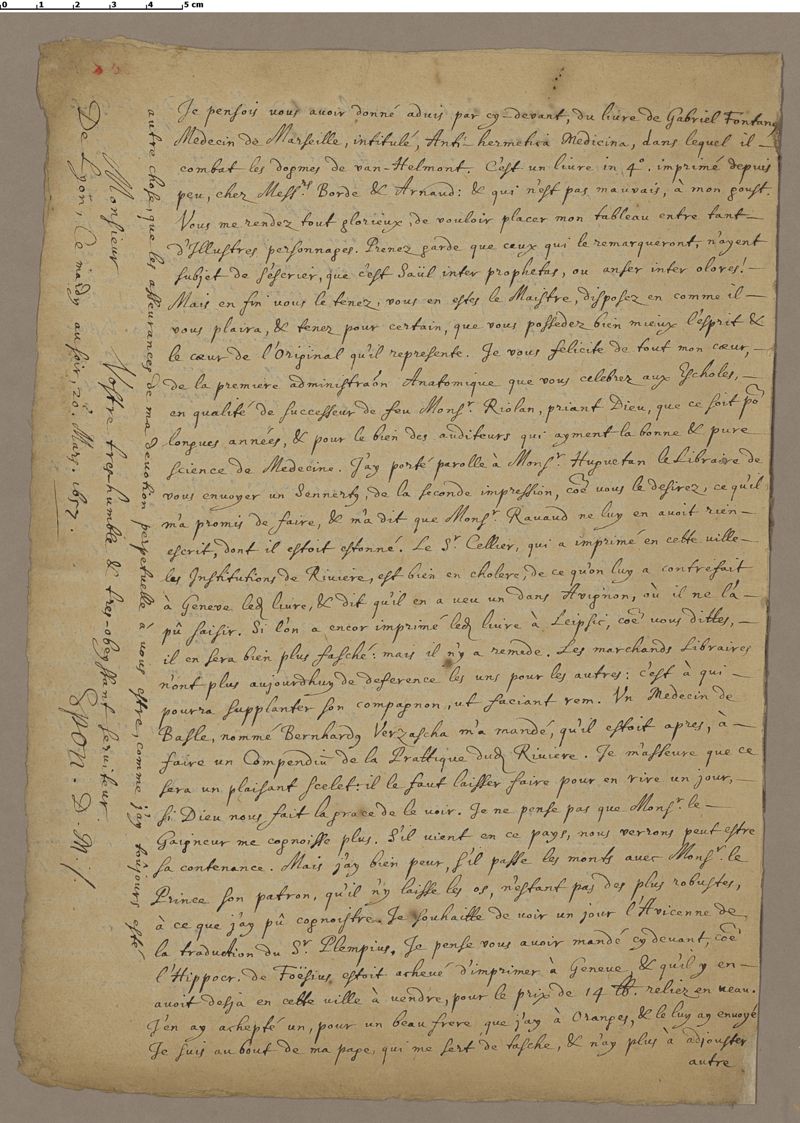 0 1 2 3 4 5 cm
Je pensois vous avoir donné aduis par cy-devant, du livre de Gabriel Fontany
Medecin de Marseille, intitulé, Anti-hermetica Medicina, dans lequel il —
combat les dogmes de van-Helmont. C'est un livre in 4°. imprimé depuis
peu, chez Mess.rs Borde & Arnaud: & qui n'est pas mauvais, à mon goust.
Vous me rendez tout glorieux, de vouloir placer mon tableau entre tant —
d'Illustres personnages. Prenez garde que ceux qui le remarqueront, n'ayent
subjet de s'escrier, que c'est Saül inter prophetas, ou anser inter olores! —
Mais en fin vous le tenez, vous en estes le Maistre, disposez en comme il —
vous plaira, & tenez pour certain, que vous possedez bien mieux l'esprit &
le cœur de l'Original qu'il represente. Je vous felicite de tout mon cœur, —
de la premiere administraõn Anatomique que vous celebrez aux Escholes, —
en qualité de successeur de feu Monsr. Riolan, priant Dieu, que ce soit põ
longues années, & pour le bien des auditeurs qui ayment la bonne & pure
science de Medecine. J'ay porté parolle à Monsr. Huguetan le Libraire de
vous envoyer un Sennerty, de la seconde impression, coẽ vous le desirez, ce qu'il
m'a promis de faire, & m'a dit que Monsr. Ravaud ne luy en avoit rien —
escrit, dont il estoit estonné. Le Sr. Cellier, qui a imprimé en cette ville —
les Institutions de Riviere, est bien en cholere, de ce qu'on luy a contrefait
à Geneve led. livre, & dit qu'il en a veu un dans Avignon, où il ne l'a —
pû saisir. Si l'on a encor imprimé led. livre à Leipsic, coẽ vous dittes, —
il en sera bien plus fasché: mais il n'y a remede. Les marchands Libraires
n'ont plus aujourdhuy de deference les uns pour les autres: c'est à qui —
pourra supplanter son compagnon, ut faciant rem. Vn Medecin de
Basle, nommé Bernhardy Verzascha m'a mandé, qu'il estoit apres, à —
faire un Compendiũ de la Prattique dud. Riviere. Je m'asseure que ce
sera un plaisant scelet: il le faut laisser faire pour en rire un jour, —
si Dieu nous fait la grace de le voir. Je ne pense pas que Monsr. le —
Gaigneur me cognoisse plus. S'il vient en ce pays, nous verrons peut estre
sa contenance. Mais j'ay bien peur, s'il passe les monts avec Monsr. le
Prince son patron, qu'il n'y laisse les os, n'estant pas des plus robustes,
à ce que j'ay pû cognoistre. Je souhaitte de voir un jour l'Avicenne de
la traduction du Sr. Plempius. Je pense vous avoir mandé cy devant, coẽ
l'Hippocr. de Foësius estoit achevé d'imprimer à Geneve, & qu'il y en —
avoit desjà en cette ville à vendre, pour le prix de 14 lb. reliez en veau.
J'en ay achepté un, pour un beau frere que j'ay à Oranges, & le luy ay envoyé
Je suis au bout de ma page, qui me sert de tasche, & n'ay plus à adjouster
autre
autre chose, que les asseurances de ma devotion perpetuelle à vous estre, comme j'ay tousjours esté
Monsieur
Vostre tres-humble & tres-obeyssant serviteur
De Lyon, ce mardy au soir, 20. Mars. 1657.
Spon. D. M.